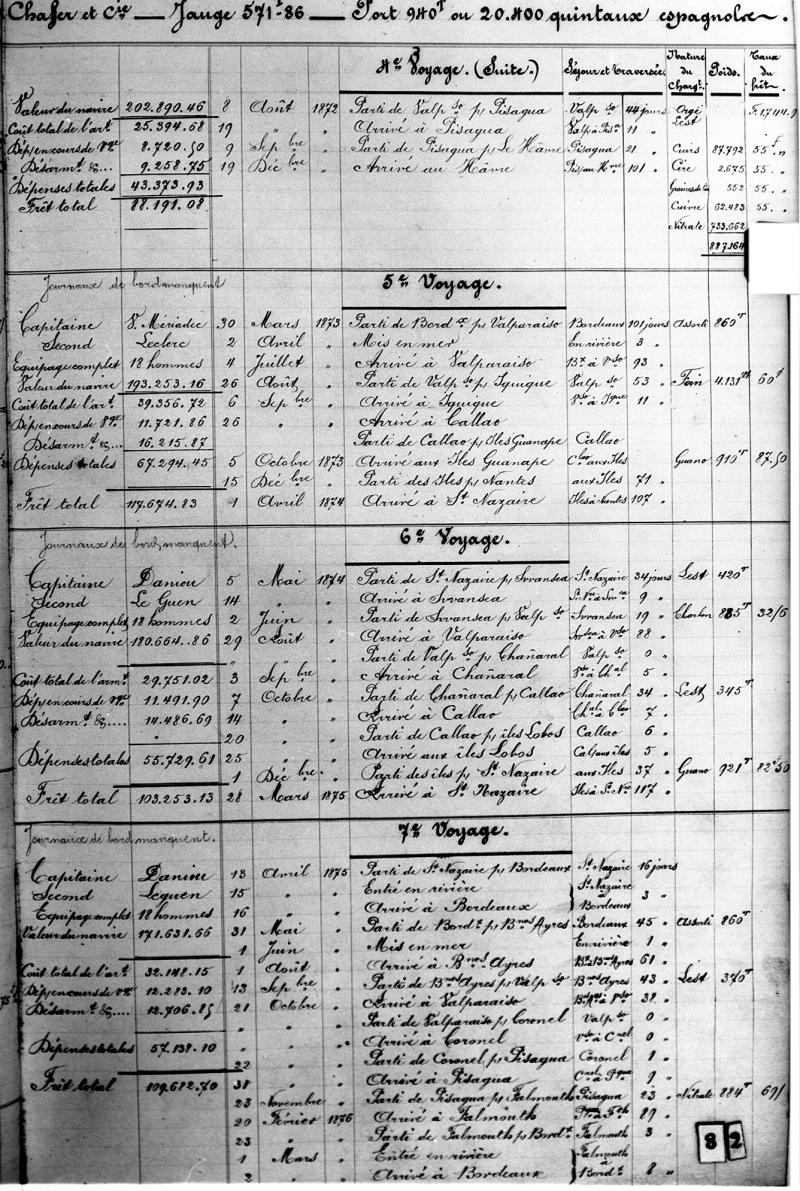 Chafer et Cie — Jauge 571tx86 — Port 940T ou 20.400 quintaux espagnols.
4e Voyage. (Suite.) Séjour et Traversée Nature du Chargt. Poids. Taux du frêt.
Valeur du navire 202.890.46 8 Août 1872 Parti de Valpso p/ Pisagua Valpso 44 jours Orge
Lest
Coût total de l'art 25.394.68 19 " " Arrivé à Pisagua 11 "
Dép. en cours de Vge 8.720.50 9 Sepbre " Parti de Pisagua p/ Le Hâvre Pisagua 21 " Cuirs 87.792 55f
Désarmt &.. 9.258.75 19 Décbre " Arrivé au Hâvre Pis/au Hvre 101 " Cire 2.675 55. "
Dépenses totales 43.373.93 552 55. "
Frêt total 88.191.08 Cuivre 62.483 55. "
Nitrate 733.662
887.164
Journaux de bord manquent 5e Voyage.
Capitaine V. Mériadec 30 Mars 1873 Parti de Bordx p/ Valparaiso Bordeaux 101 jours Assorti 860T
Second Leclerc 2 Avril " Mis en mer En rivière 3 "
Equipage complet 18 hommes 4 Juillet " Arrivé à Valparaiso Bx à Vso 93 "
Valeur du navire 193.253.16 26 Août " Parti de Valpso p/ Iquique Valpso 53 " Foin 4.131 60f
Coût total de l'art 39.356.72 6 Sepbre " Arrivé à Iquique Vso à Ique 11 "
Dép. en cours de Vge 11.721.86 26 " " Arrivé à Callao
Désarmt &... 16.215.87 Parti de Callao p/ Iles Guanape Callao
Dépenses totales 67.294.45 5 Octobre 1873 Arrivé aux Iles Guanape Clao aux Iles Guano 910T 87.50
15 Décbre " Parti des Iles p/ Nantes aux Iles 71 "
Frêt total 117.674.83 1 Avril 1874 Arrivé à St Nazaire Iles à Nantes 107 "
Journaux de bord manquent. 6e Voyage.
Capitaine Daniou 5 Mai 1874 Parti de St Nazaire p/ Swansea St Nazaire 34 jours Lest 420T
Second Le Guen 14 " " Arrivé à Swansea St Nre à Swa 9 "
Equipage complet 18 hommes 2 Juin " Parti de Swansea p/ Valpso Swansea 19 " Charbon 885T 32/6
Valeur du navire 180.664.86 29 Août " Arrivé à Valparaiso Swsea à Vso 88 "
" " " Parti de Valpso p/ Chañaral Valpso 0 "
Coût total de l'armt 29.751.02 3 Sepbre " Arrivé à Chañaral Vso à Chal 5 "
Dép. en cours de Vge 11.491.90 7 Octobre " Parti de Chañaral p/ Callao Chañaral 34 " Lest 345T
Désarmt &.... 14.486.69 14 " " Arrivé à Callao Chal à Clao 7 "
20 " " Parti de Callao p/ îles Lobos Callao 6 "
Dépenses totales 55.729.61 25 " " Arrivé aux îles Lobos Cal/aux îles 5 "
1 Décbre " Parti des îles p/ St Nazaire aux Iles 37 " Guano 921T 82f50
Frêt total 103.253.13 28 Mars 1875 Arrivé à St Nazaire Iles à St Nre 117 "
Journaux de bord manquent. 7e Voyage.
Capitaine Daniou 13 Avril 1875 Parti de St Nazaire p/ Bordeaux St Nazaire 16 jours
Second Leguen 15 " " Entré en rivière St Nazaire
à 3 "
Equipage complet 18 hommes 16 " " Arrivé à Bordeaux Bordeaux
Valeur du navire 171.631.66 31 Mai " Parti de Bordx p/ Bnos Ayres Bordeaux 45 " Assorti 860T
1 Juin " Mis en mer En rivière 1 "
Coût total de l'art 32.148.15 1 Août " Arrivé à Bnos Ayres Bx à Bnos Ayres 61 "
Dép. en cours de Vge 12.283.10 13 Sepbre " Parti de Bnos Ayres p/ Valpso Bnos Ayres 43 " Lest 370T
Désarmt &.... 12.706.85 21 Octobre " Arrivé à Valparaiso 38 "
" " " Parti de Valparaiso p/ Coronel Valpso 0 "
Dépenses totales 57.138.10 " " " Arrivé à Coronel Vso à Cnel 0 "
22 " " Parti de Coronel p/ Pisagua Coronel 1 "
Frêt total 109.682.70 31 " " Arrivé à Pisagua Cnel à Pgua 9 "
23 Novembre " Parti de Pisagua p/ Falmouth Pisagua 23 " Nitrate 884T 69/
20 Février 1876 Arrivé à Falmouth 89 "
23 " " Parti de Falmouth p/ Bordx Falmouth 3 "
1 Mars " Entré en rivière Falmouth
à
2 " " Arrivé à Bordeaux Bordx 8 "
8 2